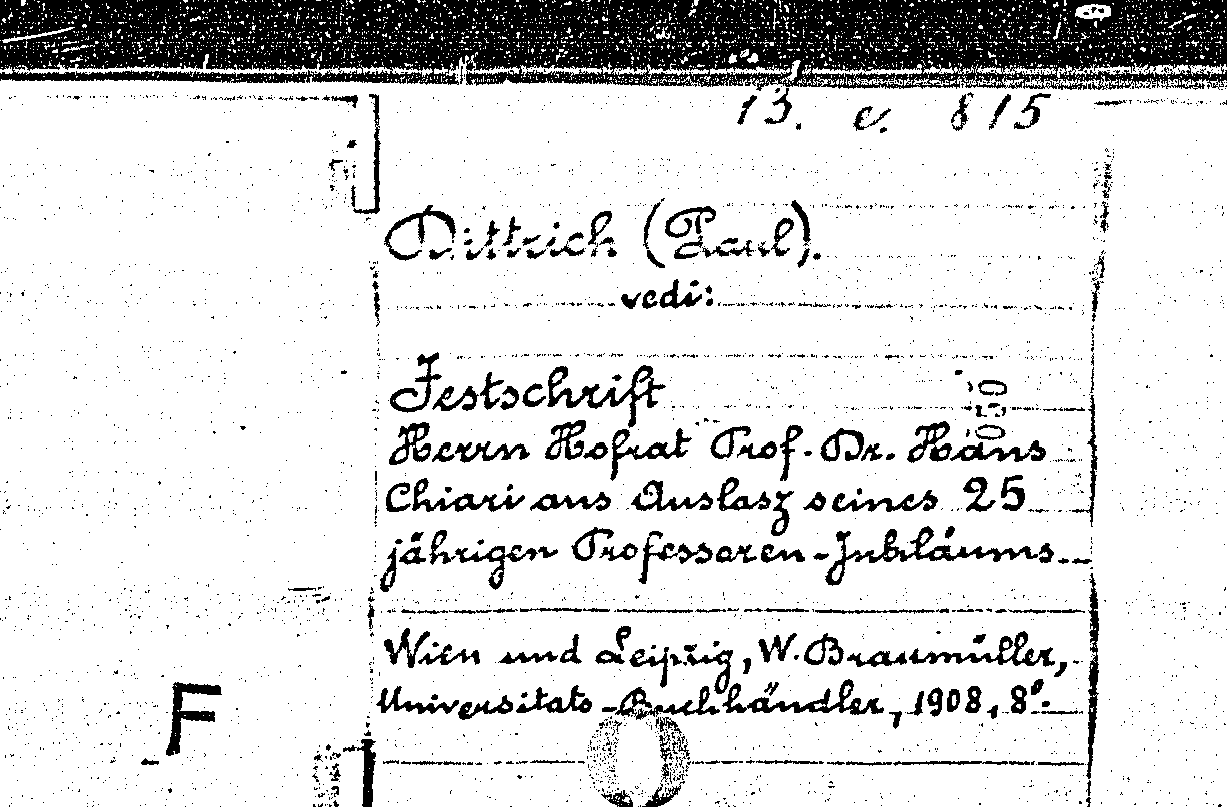 13. e. 815
Dittrich (Paul).
vedi:
Festschrift
050
Herrn Hofrat Prof. Dr. Hans
Chiari aus Auslasz seines 25
jährigen Professoren-Jubiläums
Wien und Leipzig, W. Braumüller,
Universitats-Buchhändler, 1908, 8°.
F